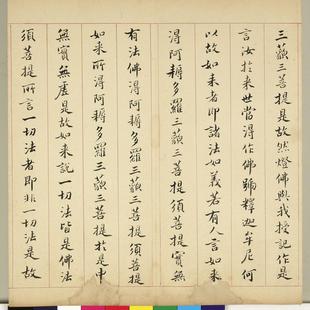 三藐三菩提是故然燈佛與我授記作是
言汝於来世當得作佛號釋迦牟尼何
以故如来者即諸法如義若有人言如来
得阿耨多羅三藐三菩提須菩提實無
有法佛得阿耨多羅三藐三菩提須菩提
如来所得阿耨多羅三藐三菩提於是中
無實無虛是故如来說一切法皆是佛法
須菩提所言一切法者即非一切法是故